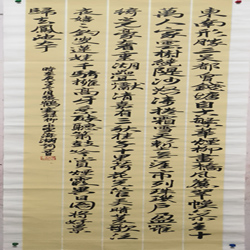 東南形勝三吳都會錢塘自古繁華煙柳畫橋風簾翠幕參差十
萬人家雲樹繞堤沙怒濤捲霜雪天塹無涯市列珠璣戶盈羅
綺競豪奢重湖疊巘清嘉有三秋桂子十里荷花羌管弄晴菱歌泛
夜嬉嬉釣叟蓮娃千騎擁高牙乘醉聽簫鼓吟賞煙霞異日圖將好景
歸去鳳池誇